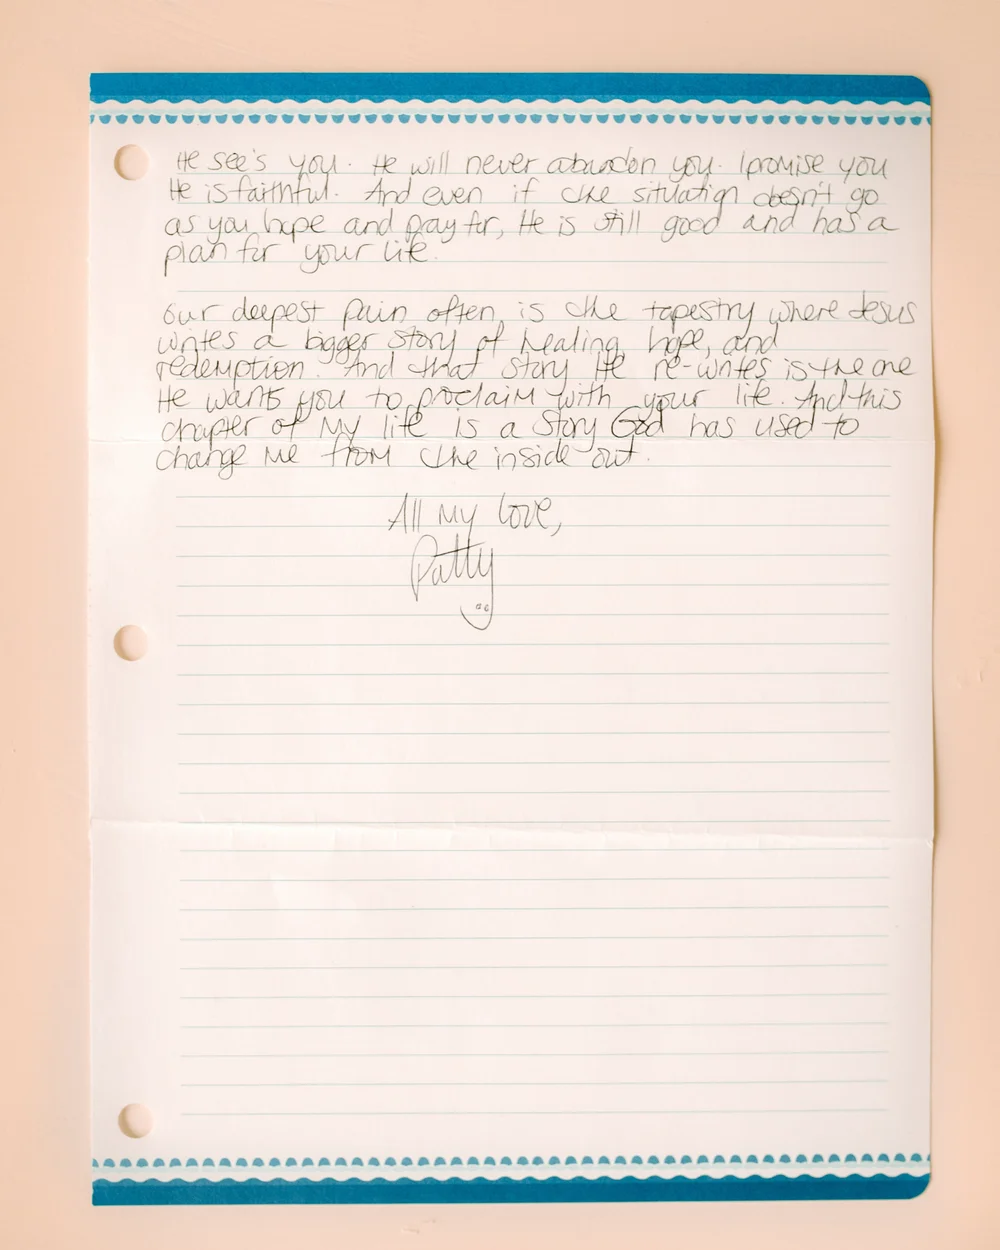 He see's you. He will never abandon you. I promise you
He is faithful. And even if the situation doesn't go
as you hope and pray for, He is still good and has a
plan for your life.
Our deepest pain often is the tapestry where Jesus
writes a bigger story of healing, hope, and
redemption. And that story He re-writes is the one
He wants you to proclaim with your life. And this
chapter of my life is a story God has used to
change me from the inside out.
All my love,
Patty